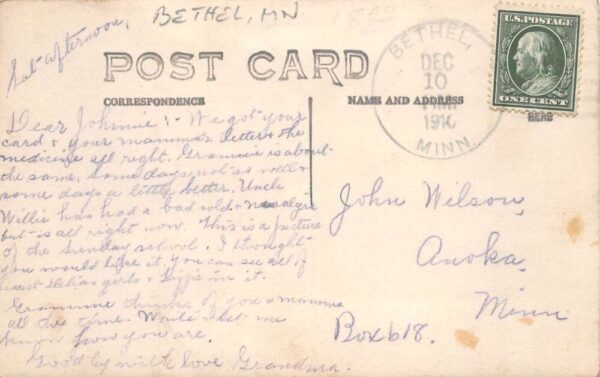 Sat afternoon,
BETHEL, MN
POST CARD
CORRESPONDENCE
NAME AND ADDRESS
HERE
BETHEL,
DEC
10
1910
MINN
U.S. POSTAGE
ONE CENT
Dear Johnnie :- We got your
card & your mamma's letter & the
medicine all right. Grammie is about
the same. Some days not so well &
some days a little better. Uncle
Willie has had a bad cold & neualgia
but is all right now. This is a picture
of the Sunday school. I thought
you would like it. You can see all of
girls & Lizzie in it.
Grammie thinks of you & mamma
all the time. Would let me
know how you are.
Good by with love Grandma.
John Wilson,
Anoka,
Minn
Box 618.